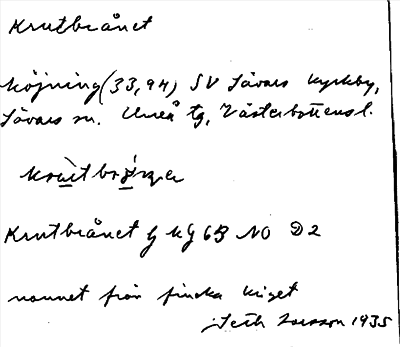 Krutbrånet
höjning (33,94) SV Sävars kyrkby,
Sävars sn. Umeå tg, Västerbottens l.
Krutbrånet G Kg 63 NO D2
namnet från finska kriget
Seth Larsson 1935